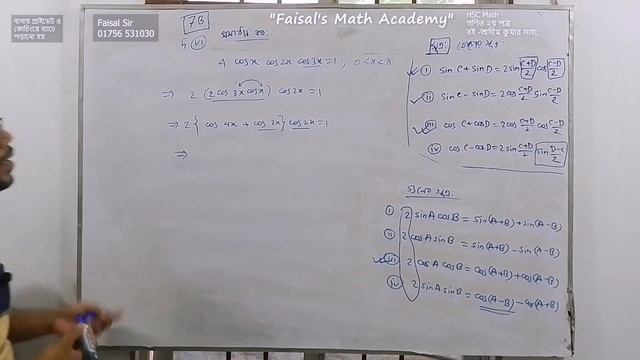 বাসায় প্রাইভেট ও
কোচিংয়ে ব্যাচে
পড়ানো হয়
Faisal Sir
01756 531030
"Faisal's Math Academy"
HSC Math
গণিত ২য় পত্র
বই -অসীম কুমার সাহা,
7B
5 (vi) সমাধান কর:
4 cosx cos2x cos3x = 1 , 0<x<π
⇒ 2 (2 cos 3x cosx) cos2x = 1
⇒ 2 { cos 4x + cos 2x } cos2x = 1
⇒
সূত্র:
(i) sin C + sin D = 2 sin (C+D)/2 cos (C-D)/2
(ii) sin C - sin D = 2 cos (C+D)/2 sin (C-D)/2
(iii) cos C + cos D = 2 cos (C+D)/2 cos (C-D)/2
(iv) cos C - cos D = 2 sin (C+D)/2 sin (D-C)/2
(i) 2 sinA cosB = sin(A+B) + sin(A-B)
(ii) 2 cosA sinB = sin(A+B) - sin(A-B)
(iii) 2 cosA cosB = cos(A+B) + cos(A-B)
(iv) 2 sinA sinB = cos(A-B) - cos(A+B)